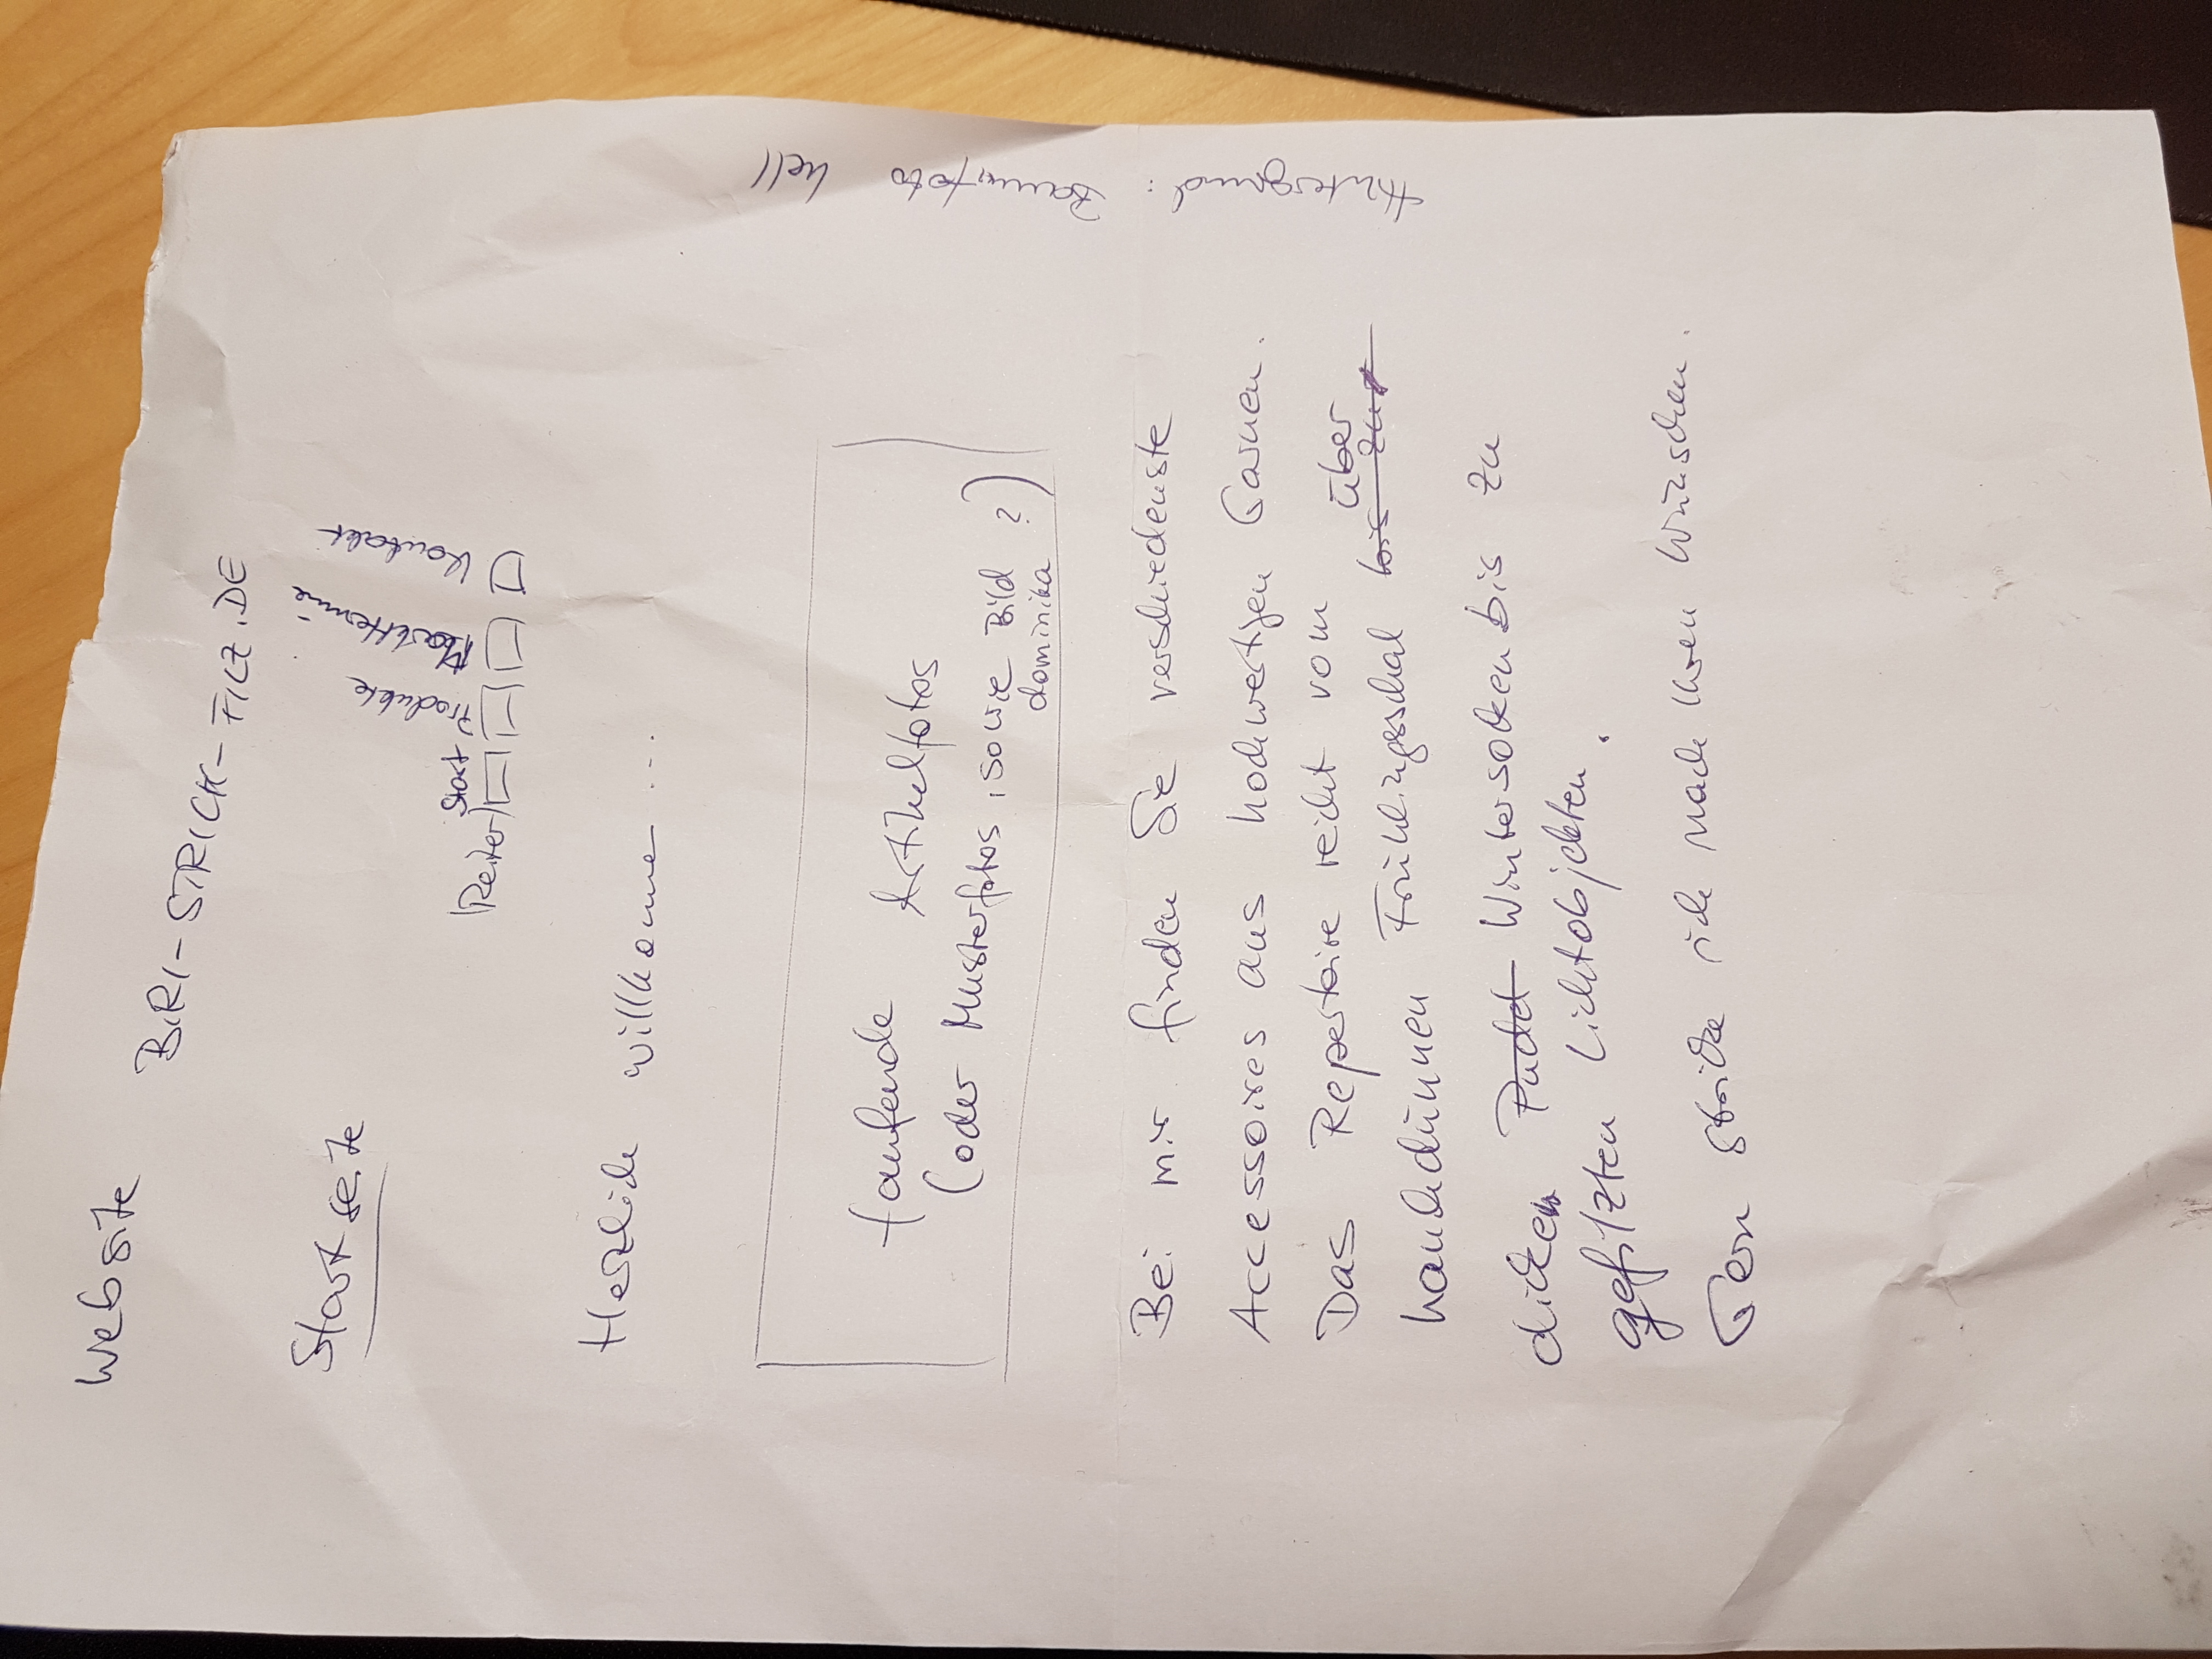 Website
BIRI-STRICK-FILZ.DE
Startseite
(Reiter) Start Produkte Markttermine Kontakt
Herzlich willkommen ...
laufende Artikelfotos
(oder Musterfotos, sowie Bild ?)
dominika
Bei mir finden Sie verschiedenste
Accessoires aus hochwertigen Garnen.
Das Repertoire reicht vom
hauchdünnen Frühlingsschal bis zur über
dicken Wintersocken bis zu
gefilzten Lichtobjekten.
Gern stricke ich nach Ihren Wünschen.
Hintergrund: Baumfoto hell